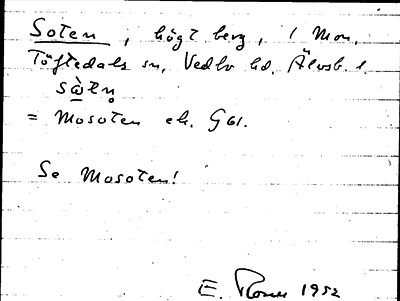 Soten, högt berg, i Mon,
Töftedals sn, Vedbo hd, Älvsb. l.
sà̱tn̥
= Mosoten ek. G61.
Se Mosoten!
E. 1952